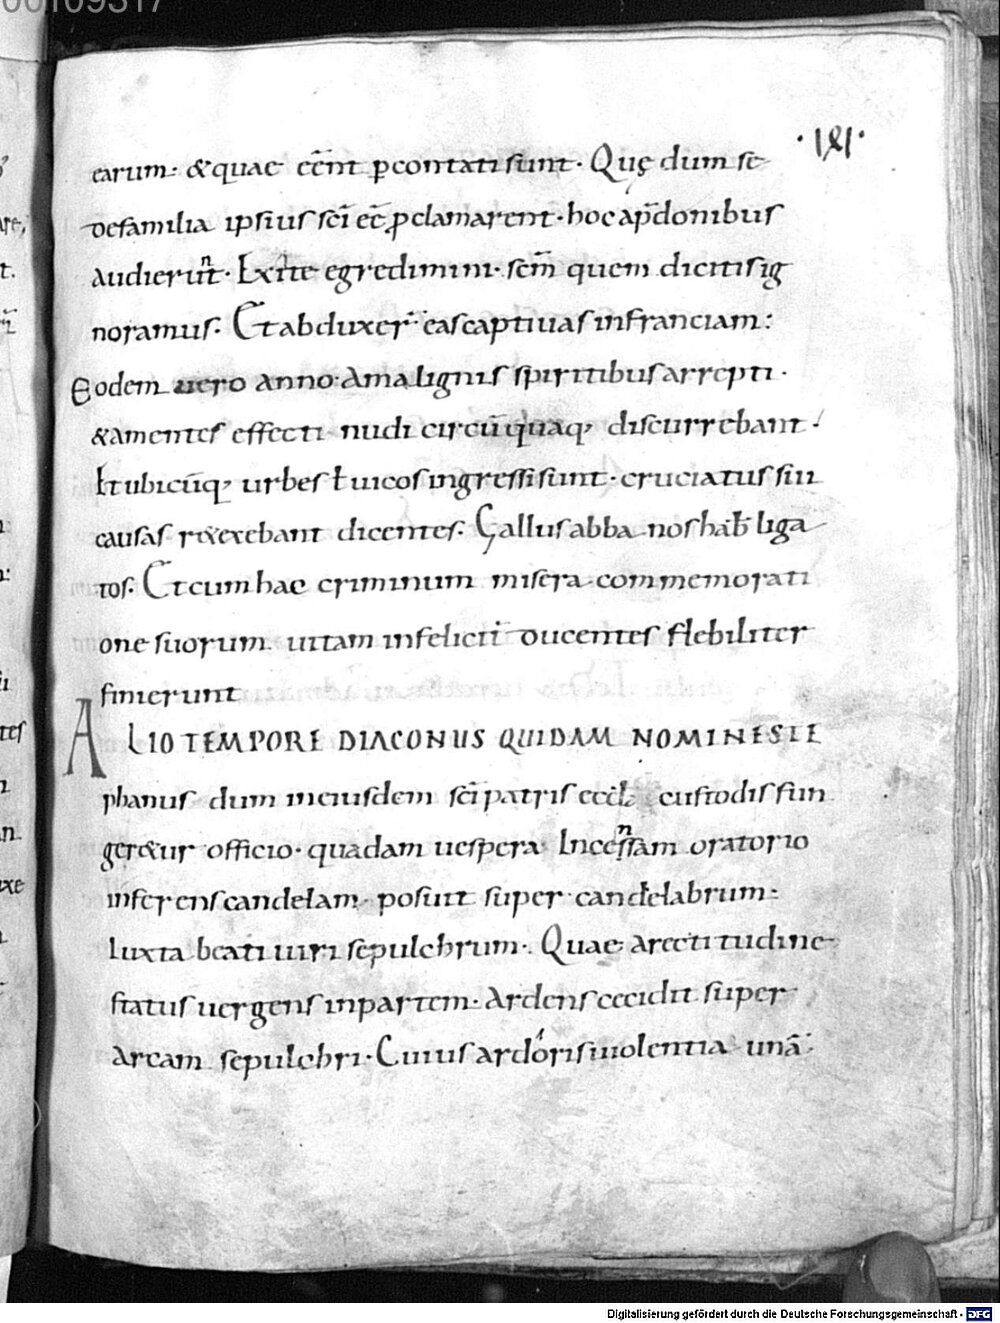 00109317
·LXI·
earum· &quae eēnt ꝑcontati sunt· Quę dum se
defamilia ipsius sc̄i eē ꝓclamarent· hoc ap̄donibus
audierūt· Exite egredimini· sem̄ quem dicitis ig
noramus· Et abduxer̄ eas captiuas infranciam:
Eodem uero anno· Amalignis spiritibus arrepti·
&amentes effecti nudi circūquaq; discurrebant·
Et ubicūq; urbes ł uicos ingressi sunt· cruciatus sui
causas r&exebant dicentes· Gallus abba nos hab& liga
tos· Et cum hac criminum misera commemorati
one suorum uitam infelicit̄ ducentes flebiliter
finierunt
ALIO TEMPORE DIACONUS QUIDAM NOMINE STE
phanus dum ineiusdem sc̄i patris eccł custodis fun
ger&ur officio· quadam uespera Incensam oratorio
inferens candelam· posuit super candelabrum:
Iuxta beati uiri sepulchrum· Quae arectitudine
status uergens inpartem· Ardens cecidit super
Arcam sepulchri· Cuius ardoris uiolentia unā·
Digitalisierung gefördert durch die Deutsche Forschungsgemeinschaft - DFG